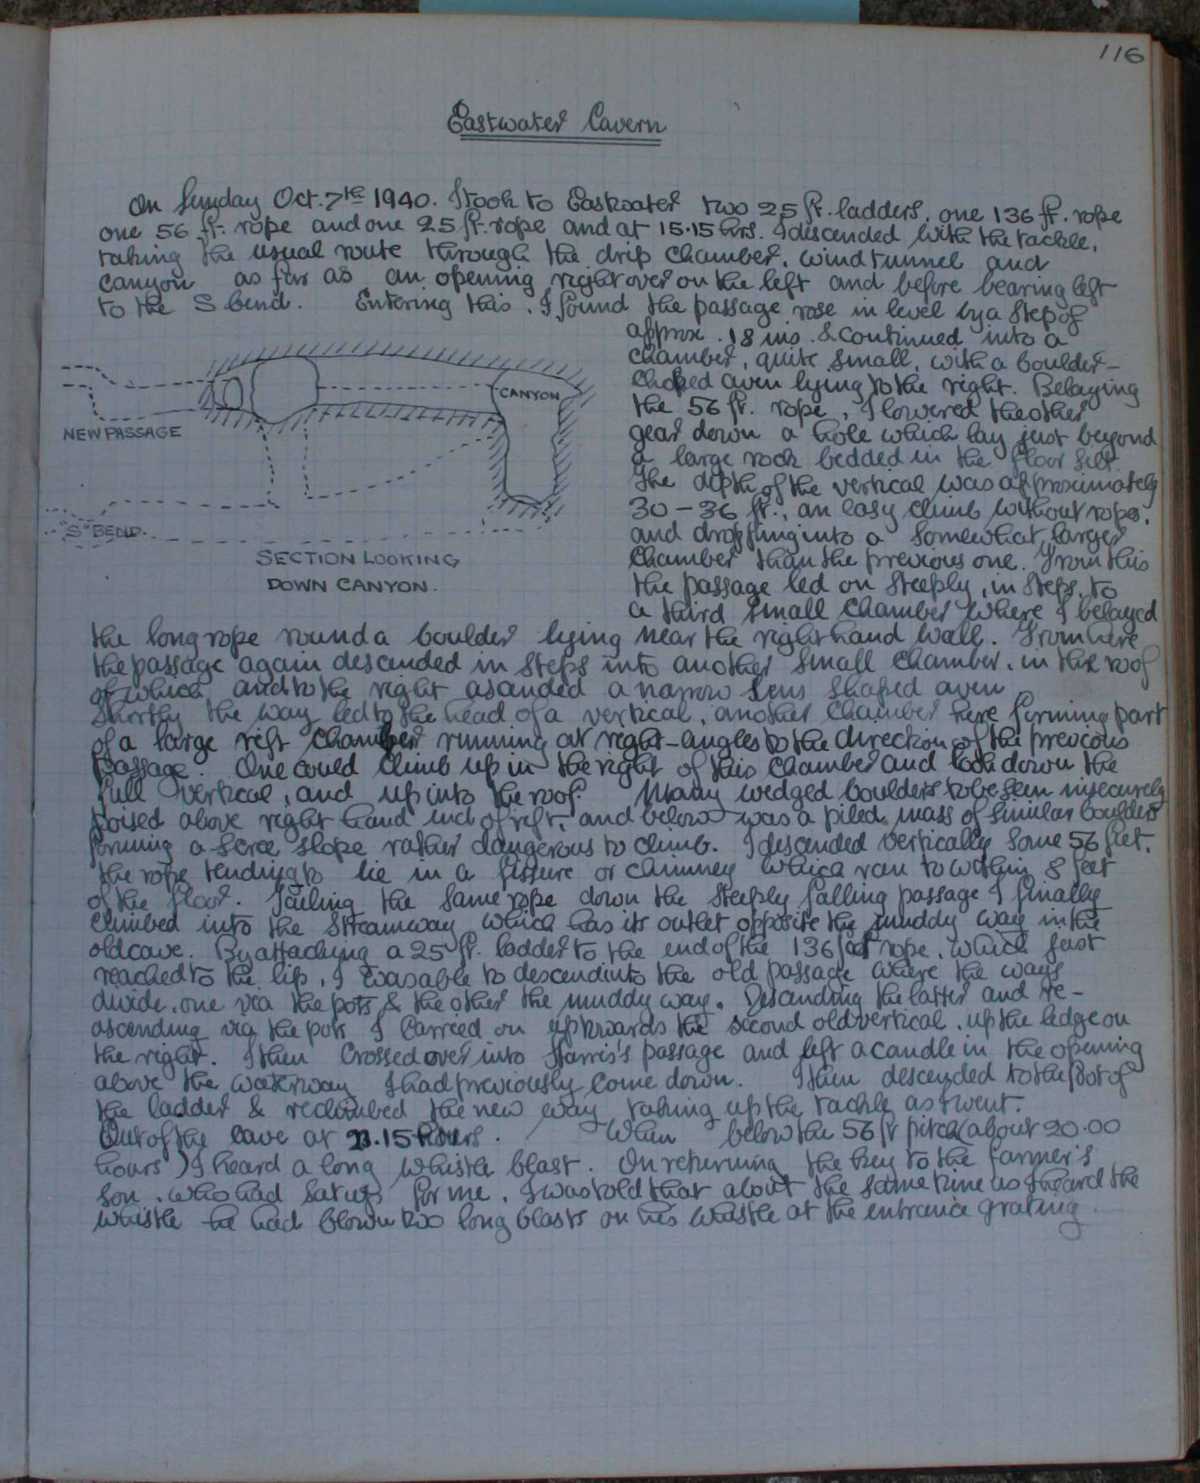 116
Eastwater Cavern
On Sunday Oct. 7th 1940. I took to Eastwater two 25 ft. ladders, one 136 ft. rope
one 56 ft. rope and one 25 ft. rope and at 15.15 hrs. I descended with the tackle,
taking the usual route through the drip chamber, wind tunnel and
canyon as far as an opening right over on the left and before bearing left
to the S bend. Entering this, I found the passage rose in level by a step of
approx. 18 ins. & continued into a
chamber, quite small, with a boulder-
choked aven lying to the right. Belaying
the 56 ft. rope, I lowered the other
gear down a hole which lay just beyond
a large rock bedded in the floor silt.
The depth of the vertical was approximately
30 - 36 ft., an easy climb without rope,
and dropping into a somewhat larger
chamber than the previous one. From this
the passage led on steeply, in steps, to
a third small chamber where I belayed
NEW PASSAGE
CANYON
"S" BEND.
SECTION LOOKING
DOWN CANYON.
the long rope round a boulder lying near the right hand wall. From here
the passage again descended in steps into another small chamber, in the roof
of which and to the right ascended a narrow lens shaped aven
Shortly the way led to the head of a vertical, another chamber here forming part
of a large rift chamber running at right-angles to the direction of the previous
passage. One could climb up in the right of this chamber and look down the
full vertical, and up into the roof. Many wedged boulders to be seen insecurely
poised above right hand end of rift, and below was a piled mass of similar boulders
forming a scree slope rather dangerous to climb. I descended vertically some 56 feet,
the rope tending to lie in a fissure or chimney which ran to within 8 feet
of the floor. Tailing the same rope down the steeply falling passage I finally
climbed into the streamway which has its outlet opposite the muddy way in the
old cave. By attaching a 25 ft. ladder to the end of the 136 foot rope, which just
reached to the lip, I was able to descend into the old passage where the ways
divide, one via the pots & the other the muddy way. Descending the latter and re-
ascending via the pots I carried on upwards the second old vertical, up the ledge on
the right. I then crossed over into Harris's passage and left a candle in the opening
above the waterway I had previously come down. I then descended to the foot of
the ladder & reclimbed the new way taking up the tackle as I went.
Out of the cave at .15 hours. When below the 56 ft pitch (about 20.00
hours) I heard a long whistle blast. On returning the key to the farmer's
son, who had sat up for me, I was told that about the same time as I heard the
whistle he had blown two long blasts on his whistle at the entrance grating.